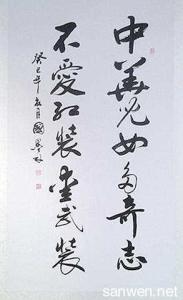 中華兒女多奇志
不愛紅裝愛武裝
癸巳年
sanwen.net